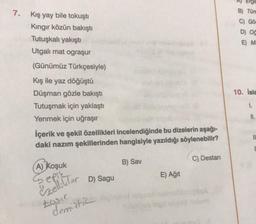 7. Kış yay bile tokuştı
Kıngır közün bakıştı
Tutuşkalı yakıştı
Utgalı mat ograşur
(Günümüz Türkçesiyle)
Kış ile yaz döğüştü
Düşman gözle bakıştı
Tutuşmak için yaklaştı
Yenmek için uğraşır
İçerik ve şekil özellikleri incelendiğinde bu dizelerin aşağı-
daki nazım şekillerinden hangisiyle yazıldığı söylenebilir?
A) Koşuk B) Sav C) Destan
D) Sagu E) Ağıt
Özellikler
B) Tür
C) Gö
D) Oğ
E) M
10. İsla
I.
II.